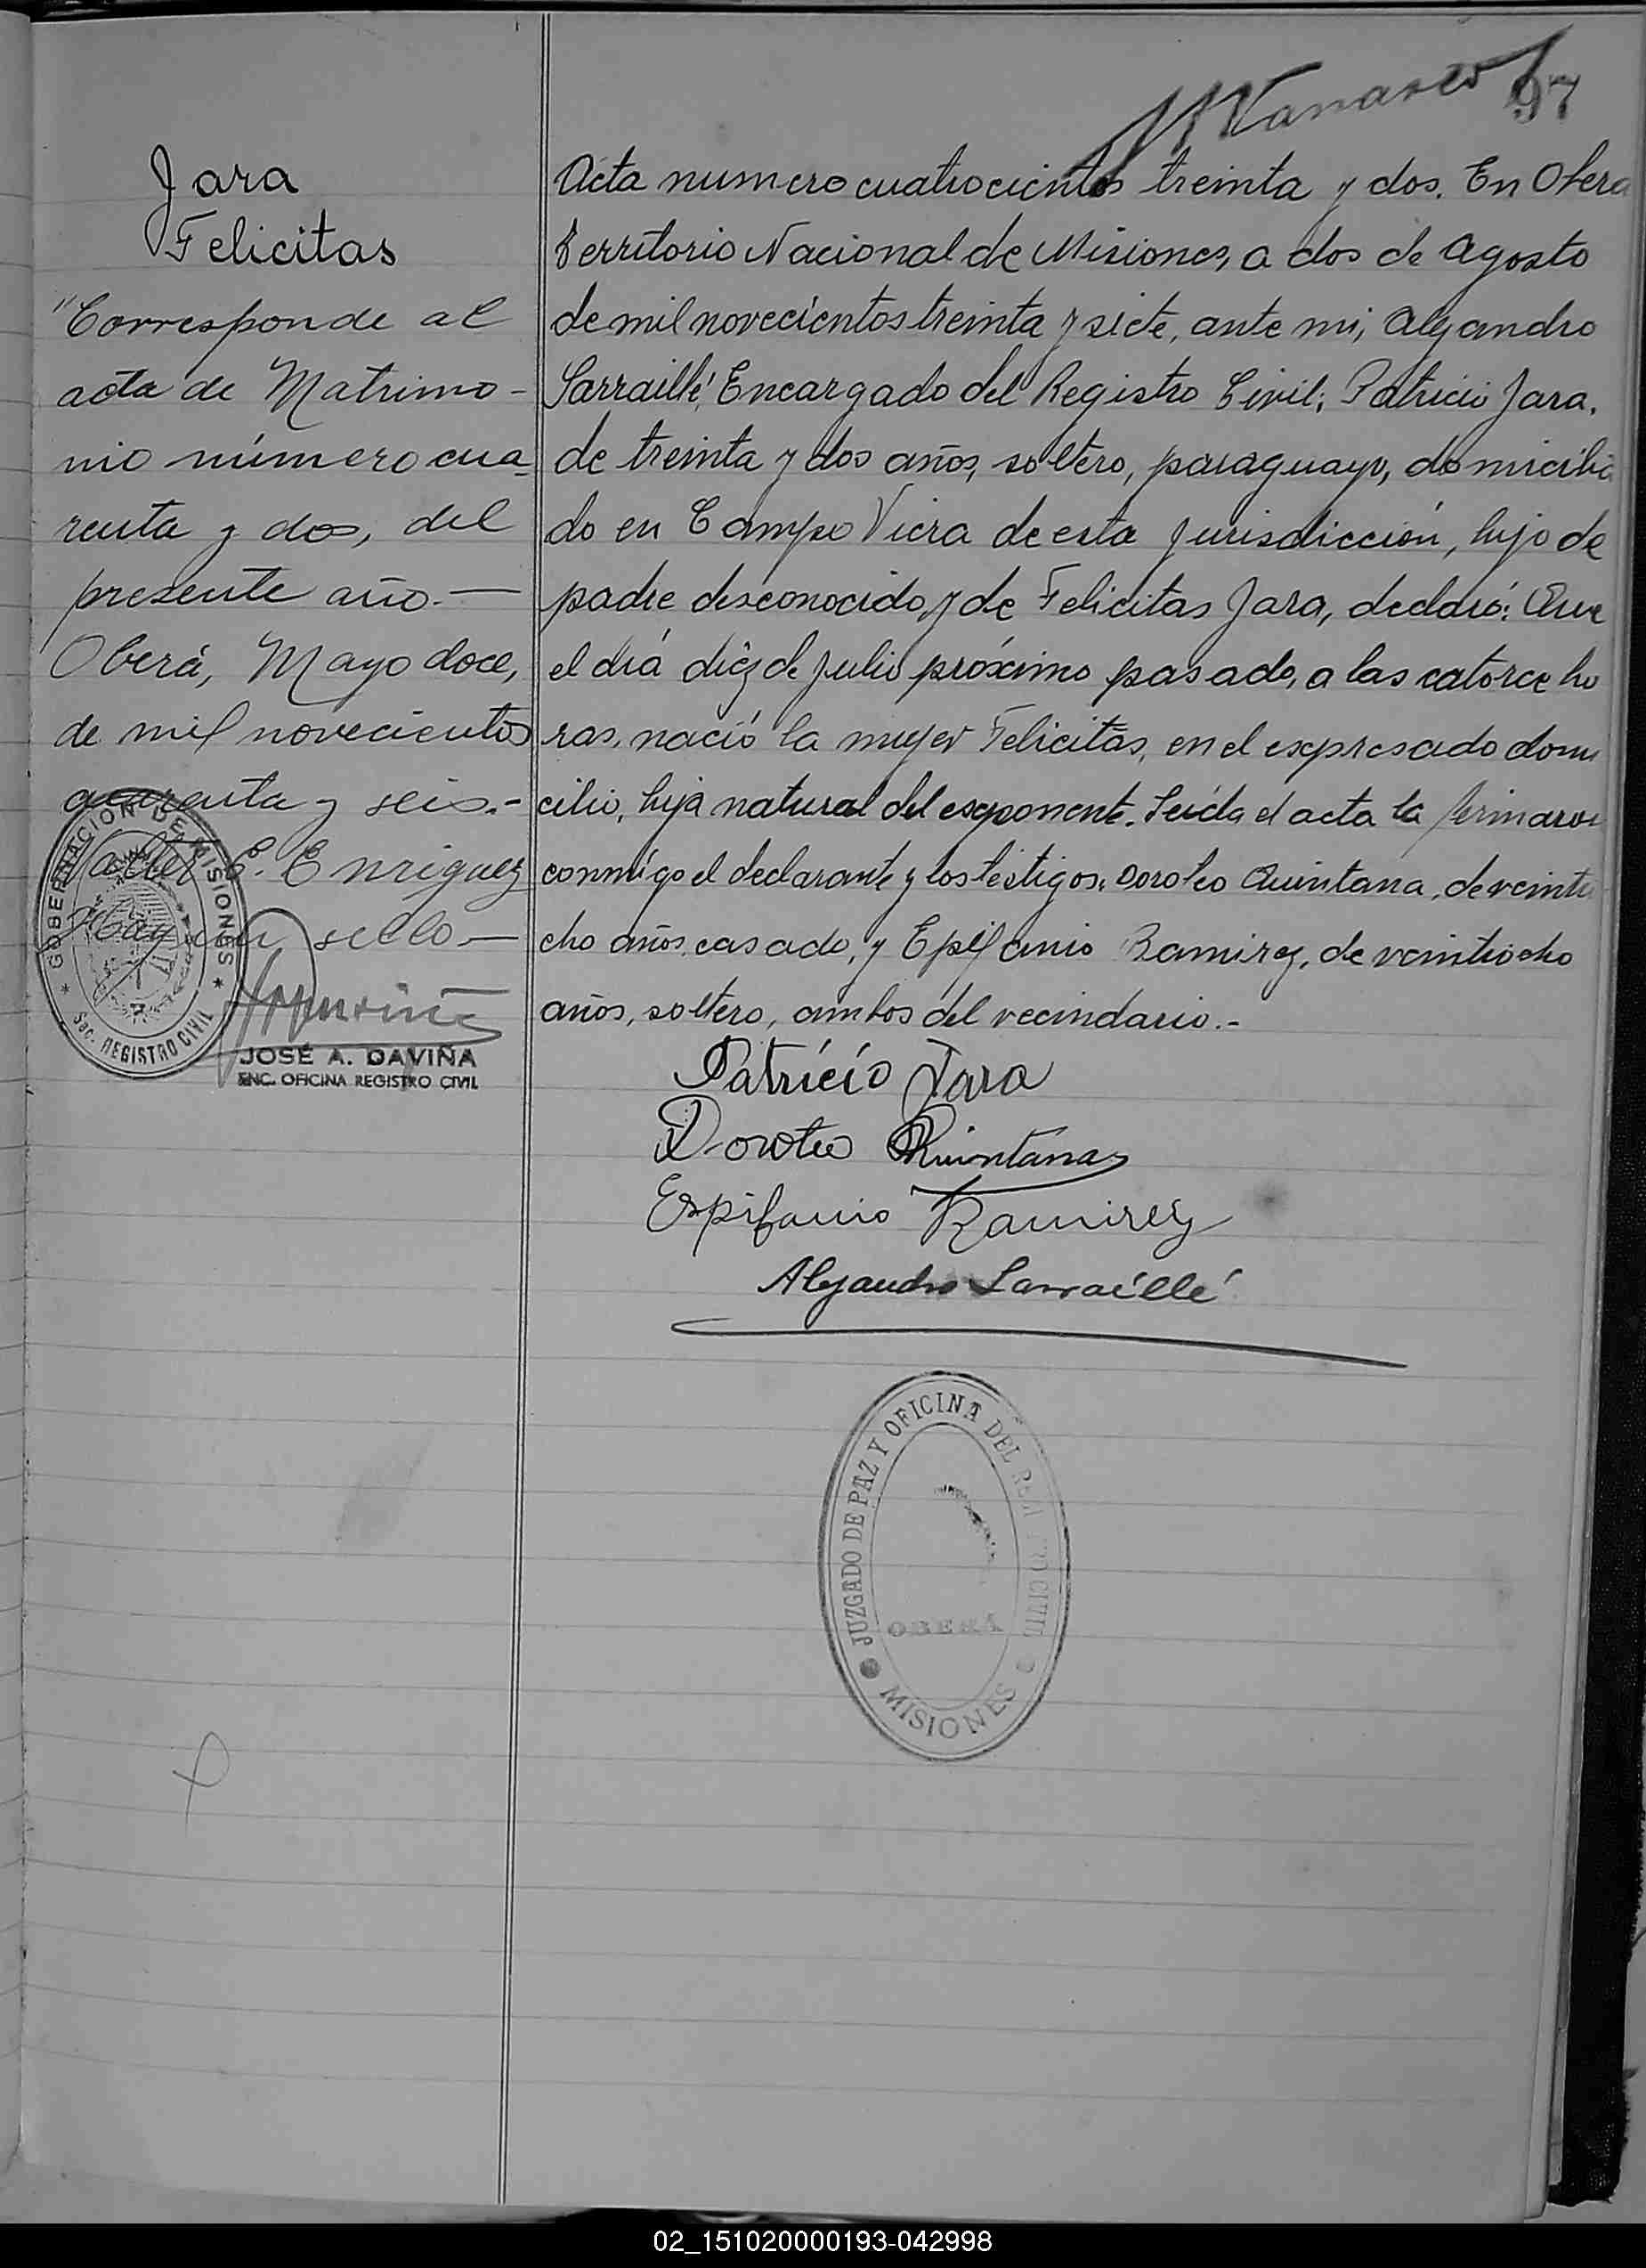 97
Jara
Felicitas
"Corresponde al
acta de Matrimo-
nio número cua-
renta y dos, del
presente año.—
Oberá, Mayo doce,
de mil novecientos
cuarenta y seis.-
E. Enriquez
Hay un sello—
GOBERNACION DE MISIONES
Sec. REGISTRO CIVIL
JOSÉ A. DAVIÑA
ENC. OFICINA REGISTRO CIVIL
Acta numero cuatrocientos treinta y dos. En Obera
Territorio Nacional de Misiones, a dos de Agosto
de mil novecientos treinta y siete, ante mi, Alejandro
Larraillé, Encargado del Registro Civil; Patricio Jara,
de treinta y dos años, soltero, paraguayo, domicilia
do en Campo Viera de esta jurisdicción, hijo de
padre desconocido, y de Felicitas Jara, declaró: Que
el dia diez de Julio próximo pasado, a las catorce ho
ras, nació la mujer Felicitas, en el expresado domi
cilio, hija natural del exponente. Leida el acta la firmaron
conmigo el declarante y los testigos: Doroteo Quintana, de veintio
cho años, casado, y Epifanio Ramirez, de veintiocho
años, soltero, ambos del vecindario.-
Patrício Jara
Doroteo Quintana
Espifanio Ramirez
Alejandro Larraillé
JUZGADO DE PAZ Y OFICINA DEL REGISTRO CIVIL
OBERÁ
MISIONES
02_151020000193-042998